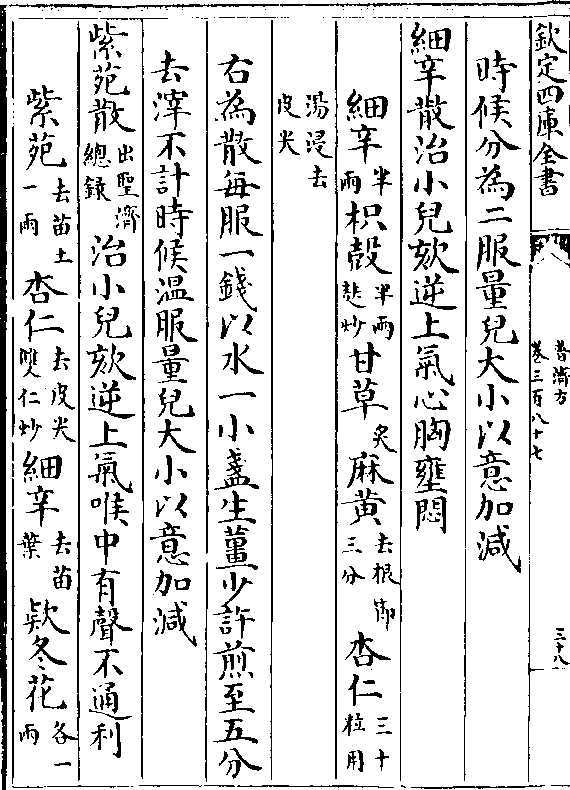 欽定四庫全書
普濟方
卷三百八十七
三十八
時候分為二服量兒大小以意加減
細辛散治小兒欬逆上氣心胸壅悶
細辛半兩枳殼半兩麩炒甘草炙麻黄去根節三分杏仁三十粒用
湯浸去皮尖
右為散每服一錢以水一小盞生薑少許煎至五分
去滓不計時候溫服量兒大小以意加減
紫菀散出聖濟總錄治小兒欬逆上氣喉中有聲不通利
紫菀去苗土一兩杏仁去皮尖雙仁炒細辛去苗葉欵冬花各一兩